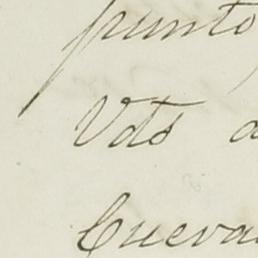 punto
Vds
Cueva